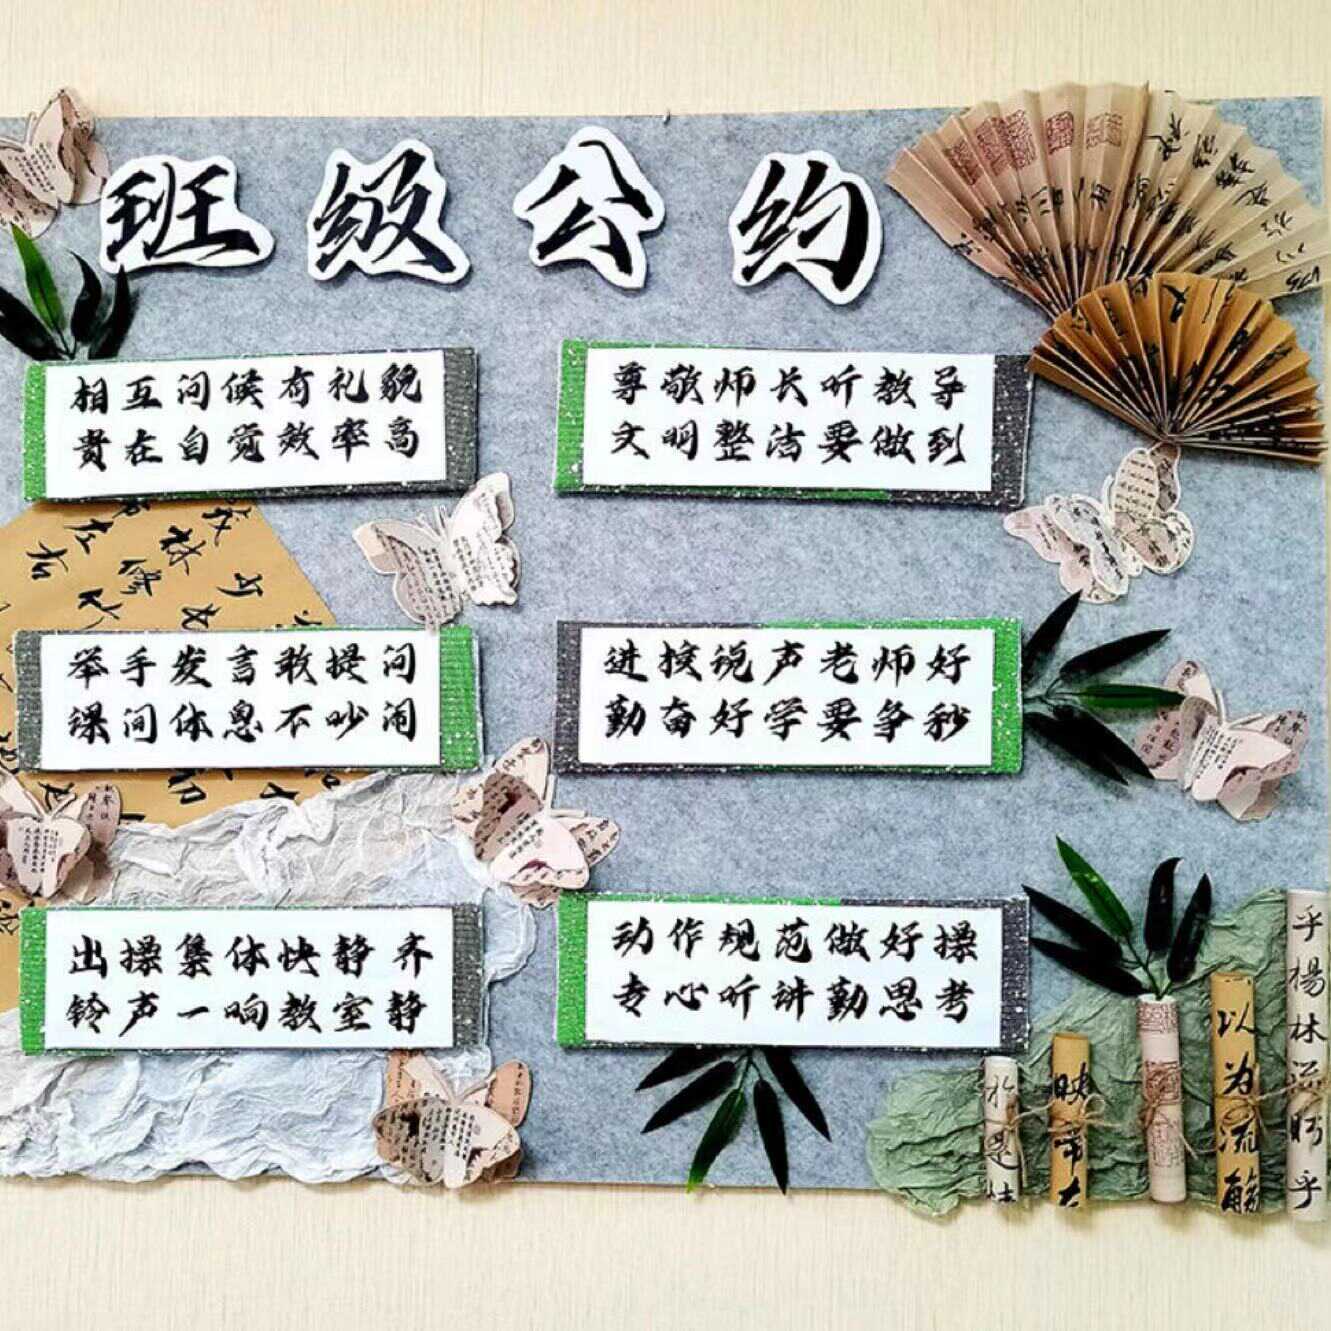 班级公约
相互问候有礼貌
贵在自觉效率高
尊敬师长听教导
文明整洁要做到
举手发言敢提问
课间休息不吵闹
进校说声老师好
勤奋好学要争秒
出操集体快静齐
铃声一响教室静
动作规范做好操
专心听讲勤思考
映带左
以为流觞